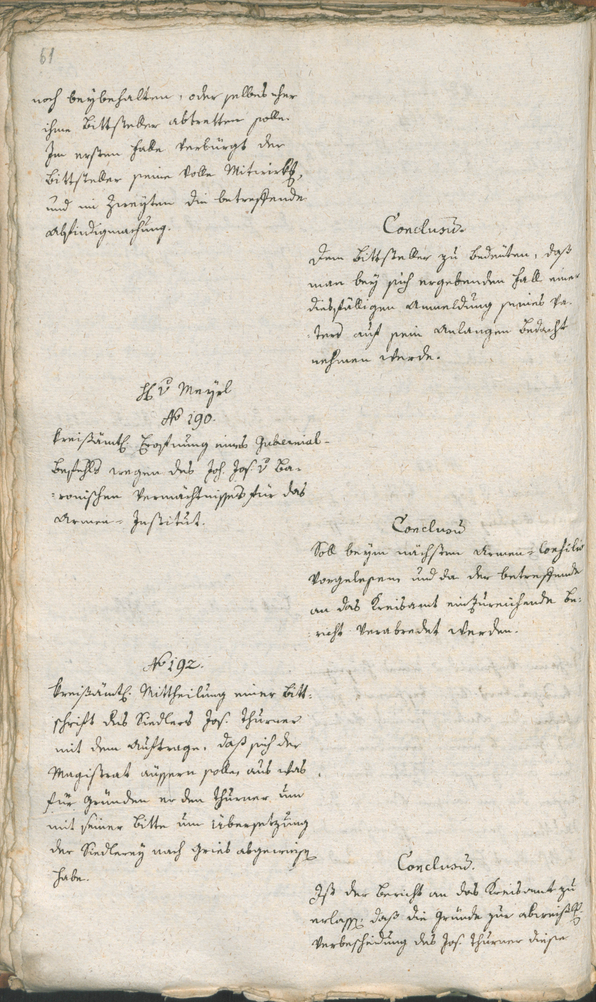 61
noch beybehalten, oder selbes eher
ihme Bittsteller abtretten solle.
Im ersten Falle verbürgt der
Bittsteller seine volle Mitwirkg,
und im zweyten die betreffende
Abfindigmachung.
Conclusum.
Dem Bittsteller zu bedeuten, daß
man bey sich ergebenden Fall einer
diesfälligen Anmeldung seines Va-
ters auf sein Anlangen bedacht
nehmen werde.
H v Mayrl
No 190.
Kreißämtl Eröfnung eines Gubernial-
Befehls wegen des Joh Jos v Ba-
ronischen Vermächtnisses für das
Armen-Institut.
Conclusum
Soll beym nächsten Armen-Consilio
vorgelesen, und da der betreffende
an das Kreisamt einzureichende Be-
richt verabredet werden.
No 192.
Kreißämtl. Mittheilung einer Bitt-
schrift des Siedlers Jos. Thurner
mit dem Auftrage, daß sich der
Magistrat äussern solle, aus was
für Gründen er den Thurner um
mit seiner Bitte um Übersetzung
der Siedlerey nach Gries abgewiesen
habe.
Conclusum.
Ist der Bericht an das Kreisamt zu
erlassen: daß die Gründe zur
Verbescheidung des Jos. Thurner diese